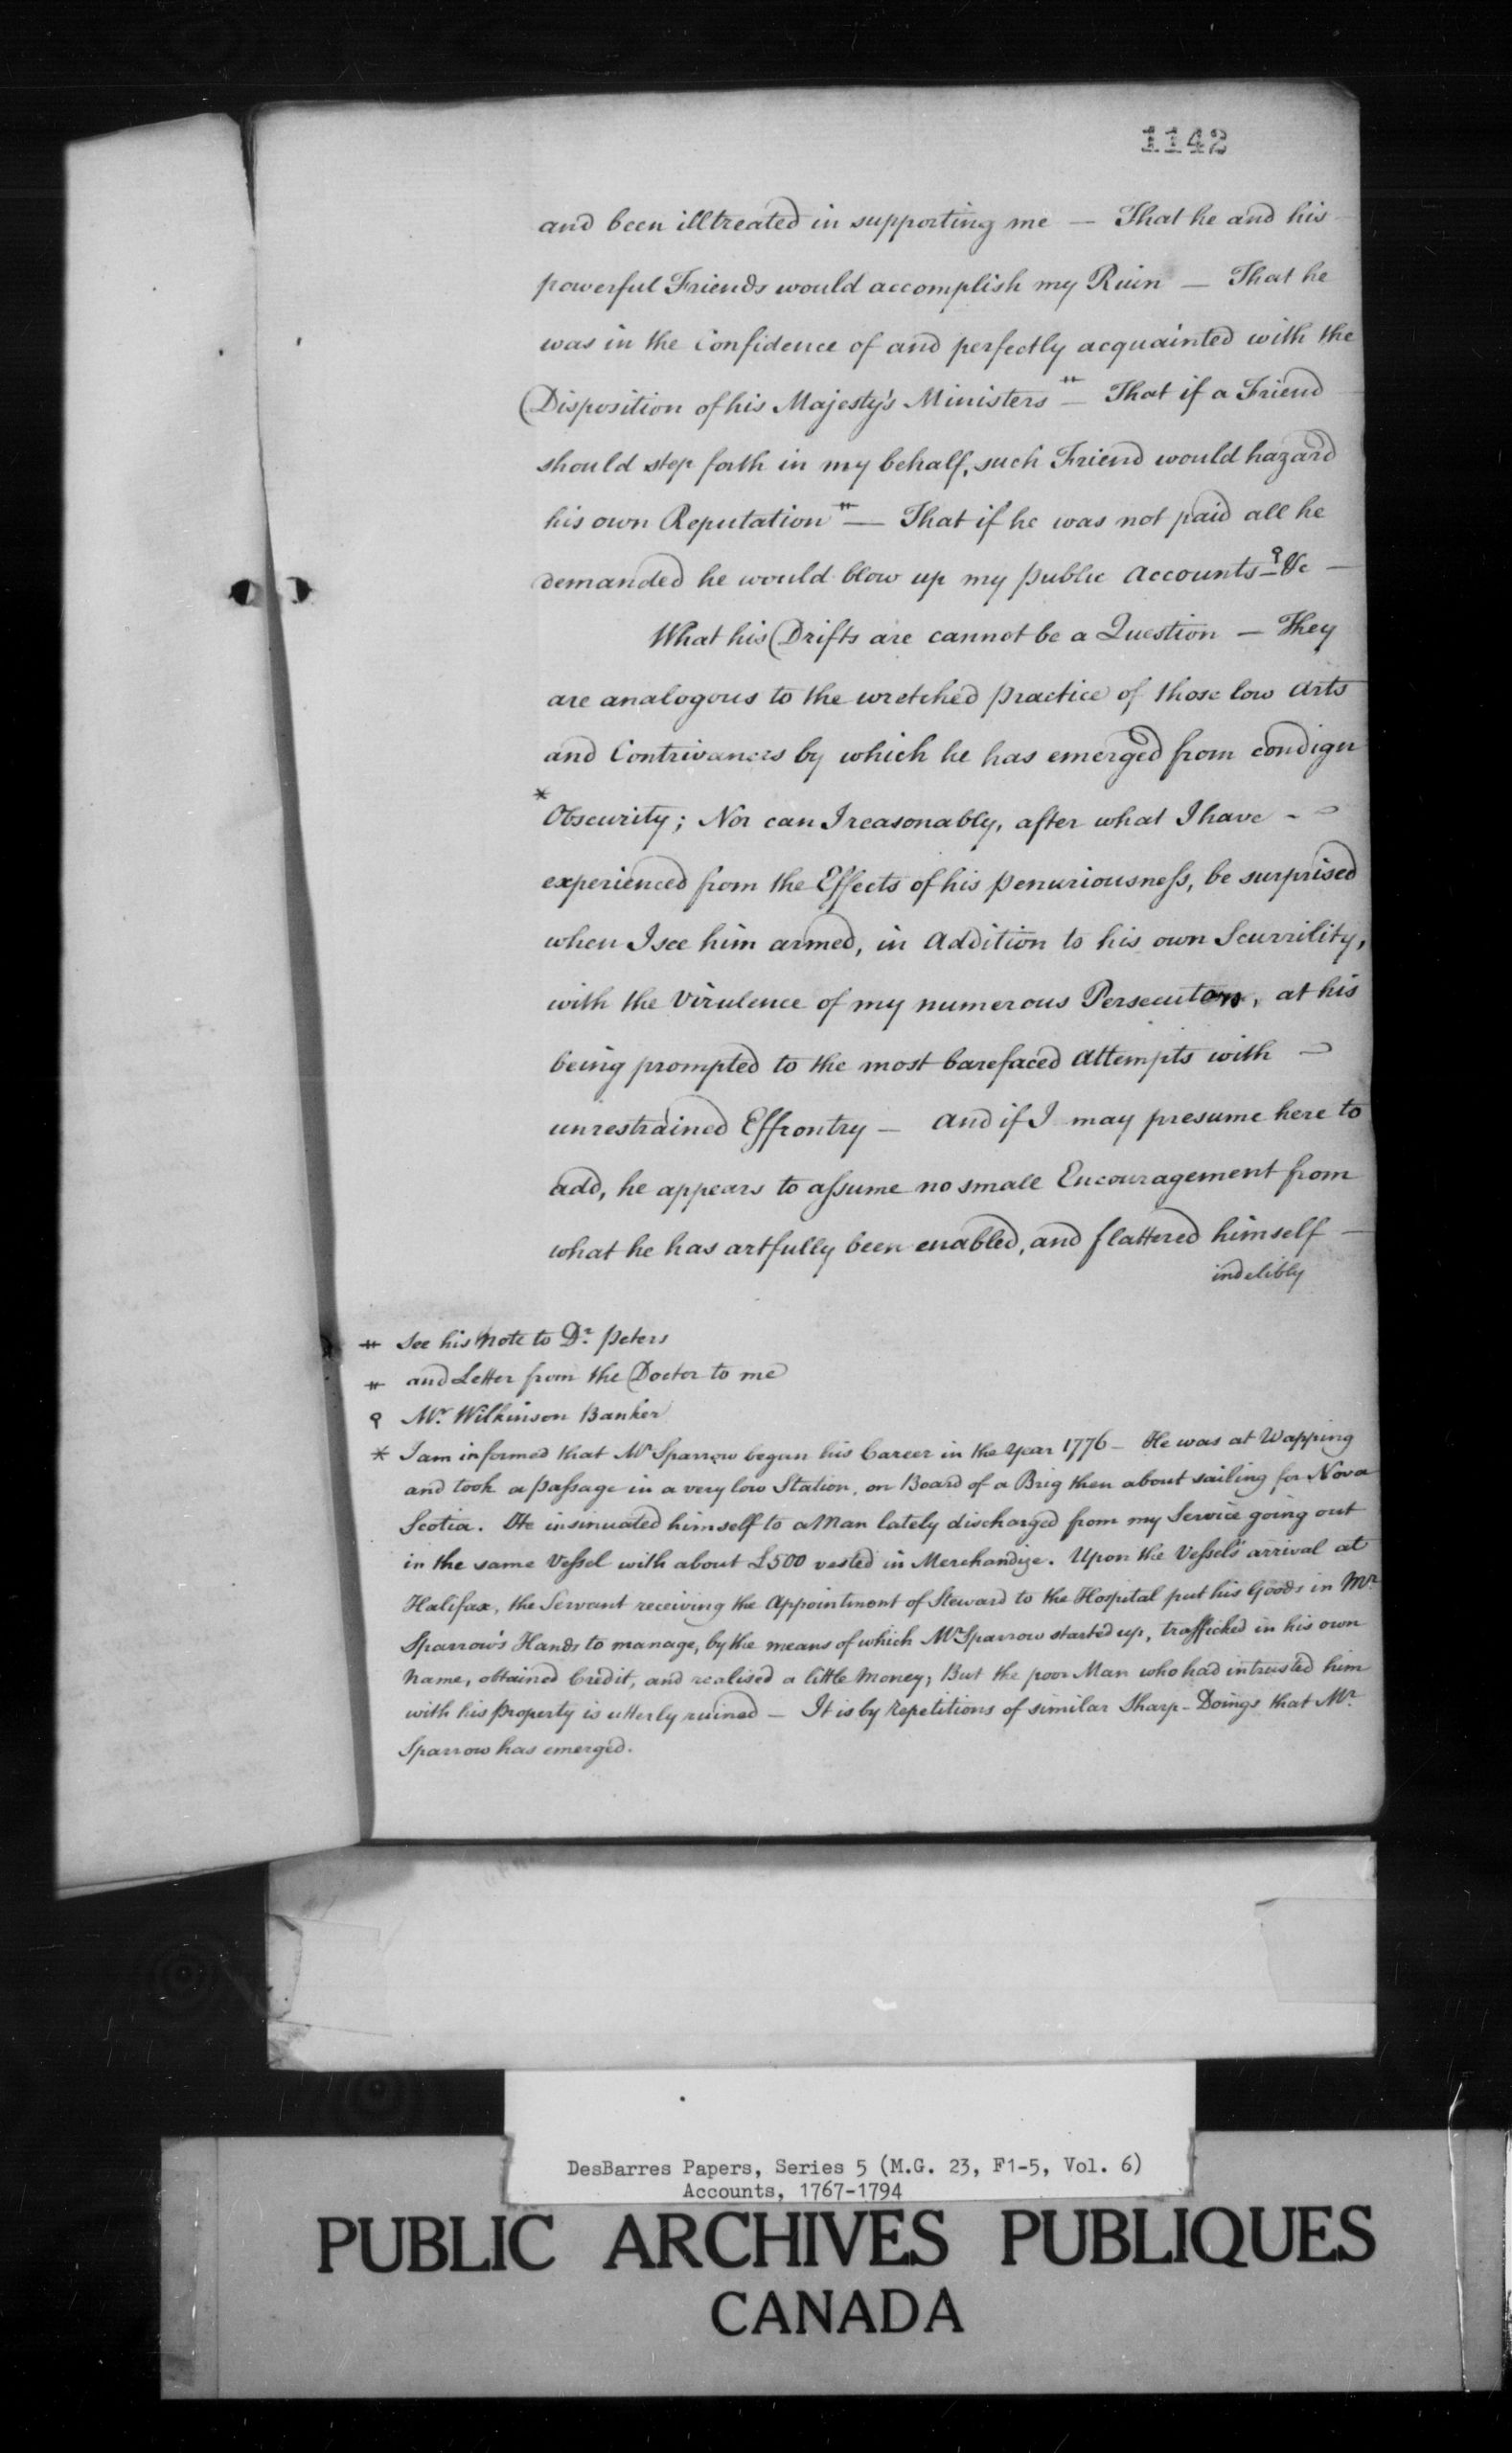 1142
and been illtreated in supporting me — That he and his
powerful Friends would accomplish my Ruin — That he
was in the Confidence of and perfectly acquainted with the
Disposition of his Majesty's Ministers ⧺ — That if a Friend
should step forth in my behalf, such Friend would hazard
his own Reputation ⧺ — That if he was not paid all he
demanded he would blow up my public Accounts — ⚲ &c —
What his Drifts are cannot be a Question — They
are analogous to the wretched practice of those low Arts
and Contrivances by which he has emerged from condign
* Obscurity; Nor can I reasonably, after what I have - -
experienced from the Effects of his penuriousneſs, be surprised
when I see him armed, in Addition to his own Scurrility,
with the Virulence of my numerous Persecutors, at his
being prompted to the most barefaced Attempts with —
unrestrained Effrontry — And if I may presume here to
add, he appears to aſsume no small Encouragement from
what he has artfully been enabled, and flattered himself —
indelibly
⧺ See his Note to Dr. Peters
⧺ and Letter from the Doctor to me
⚲ Mr. Wilkinson Banker
* I am informed that Mr Sparrow began his Career in the Year 1776 — He was at Wapping
and took a paſsage in a very low Station, on Board of a Brig then about sailing for Nova
Scotia. He insinuated himself to a Man lately discharged from my Service going out
in the same Veſsel with about £500 vested in Merchandize. Upon the Veſsels' arrival at
Halifax, the Servant receiving the Appointment of Steward to the Hospital put his Goods in Mr
Sparrow's Hands to manage, by the means of which Mr Sparrow started up, trafficked in his own
Name, obtained Credit, and realised a little Money; But the poor Man who had intrusted him
with his Property is utterly ruined — It is by Repetitions of similar Sharp-Doings that Mr.
Sparrow has emerged.
DesBarres Papers, Series 5 (M.G. 23, F1-5, Vol. 6)
Accounts, 1767-1794
PUBLIC ARCHIVES PUBLIQUES
CANADA